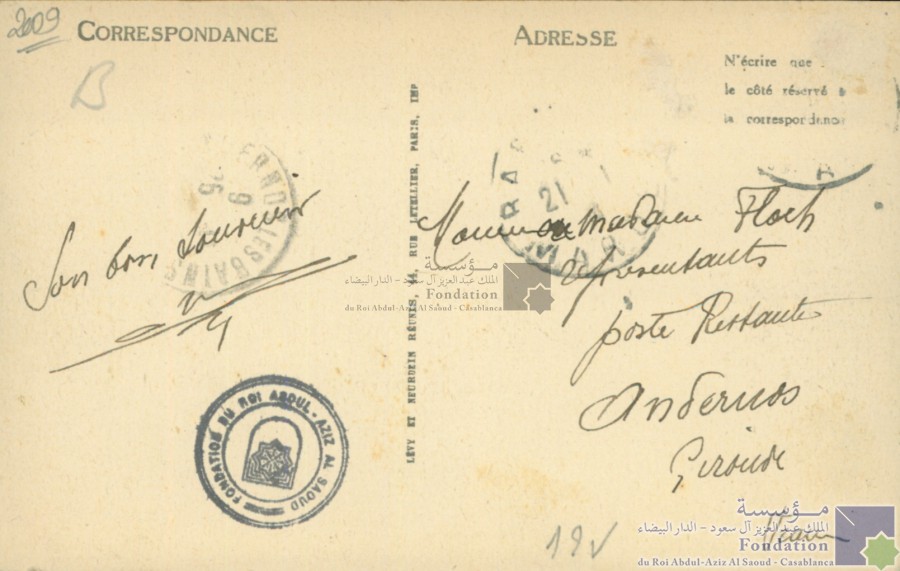 2009
CORRESPONDANCE
ADRESSE
N'écrire que
le côté réservé
la correspondance
B
Son bon Souvenir
LÉVY ET NEURDEIN RÉUNIS, 44, RUE LETELLIER, PARIS, IMP
21
madame Floch
Représentants
poste Restante
Andernos
Gironde
FONDATION DU ROI ABDUL-AZIZ AL SAOUD
مؤسسة
الملك عبد العزيز آل سعود - الدار البيضاء
Fondation
du Roi Abdul-Aziz Al Saoud - Casablanca
مؤسسة
الملك عبد العزيز آل سعود - الدار البيضاء
Fondation
du Roi Abdul-Aziz Al Saoud - Casablanca